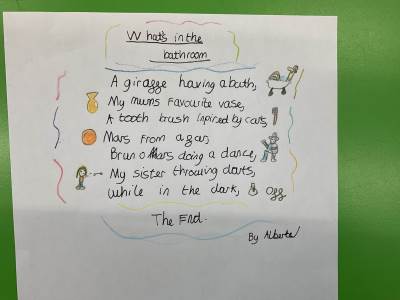 What's in the
bathroom
A giraffe having a bath,
My mums favourite vase,
A tooth brush inpired by cars,
Mars from a far,
Bruno Mars doing a dance,
My sister throwing darts,
while in the dark, off
The End.
By Alberta